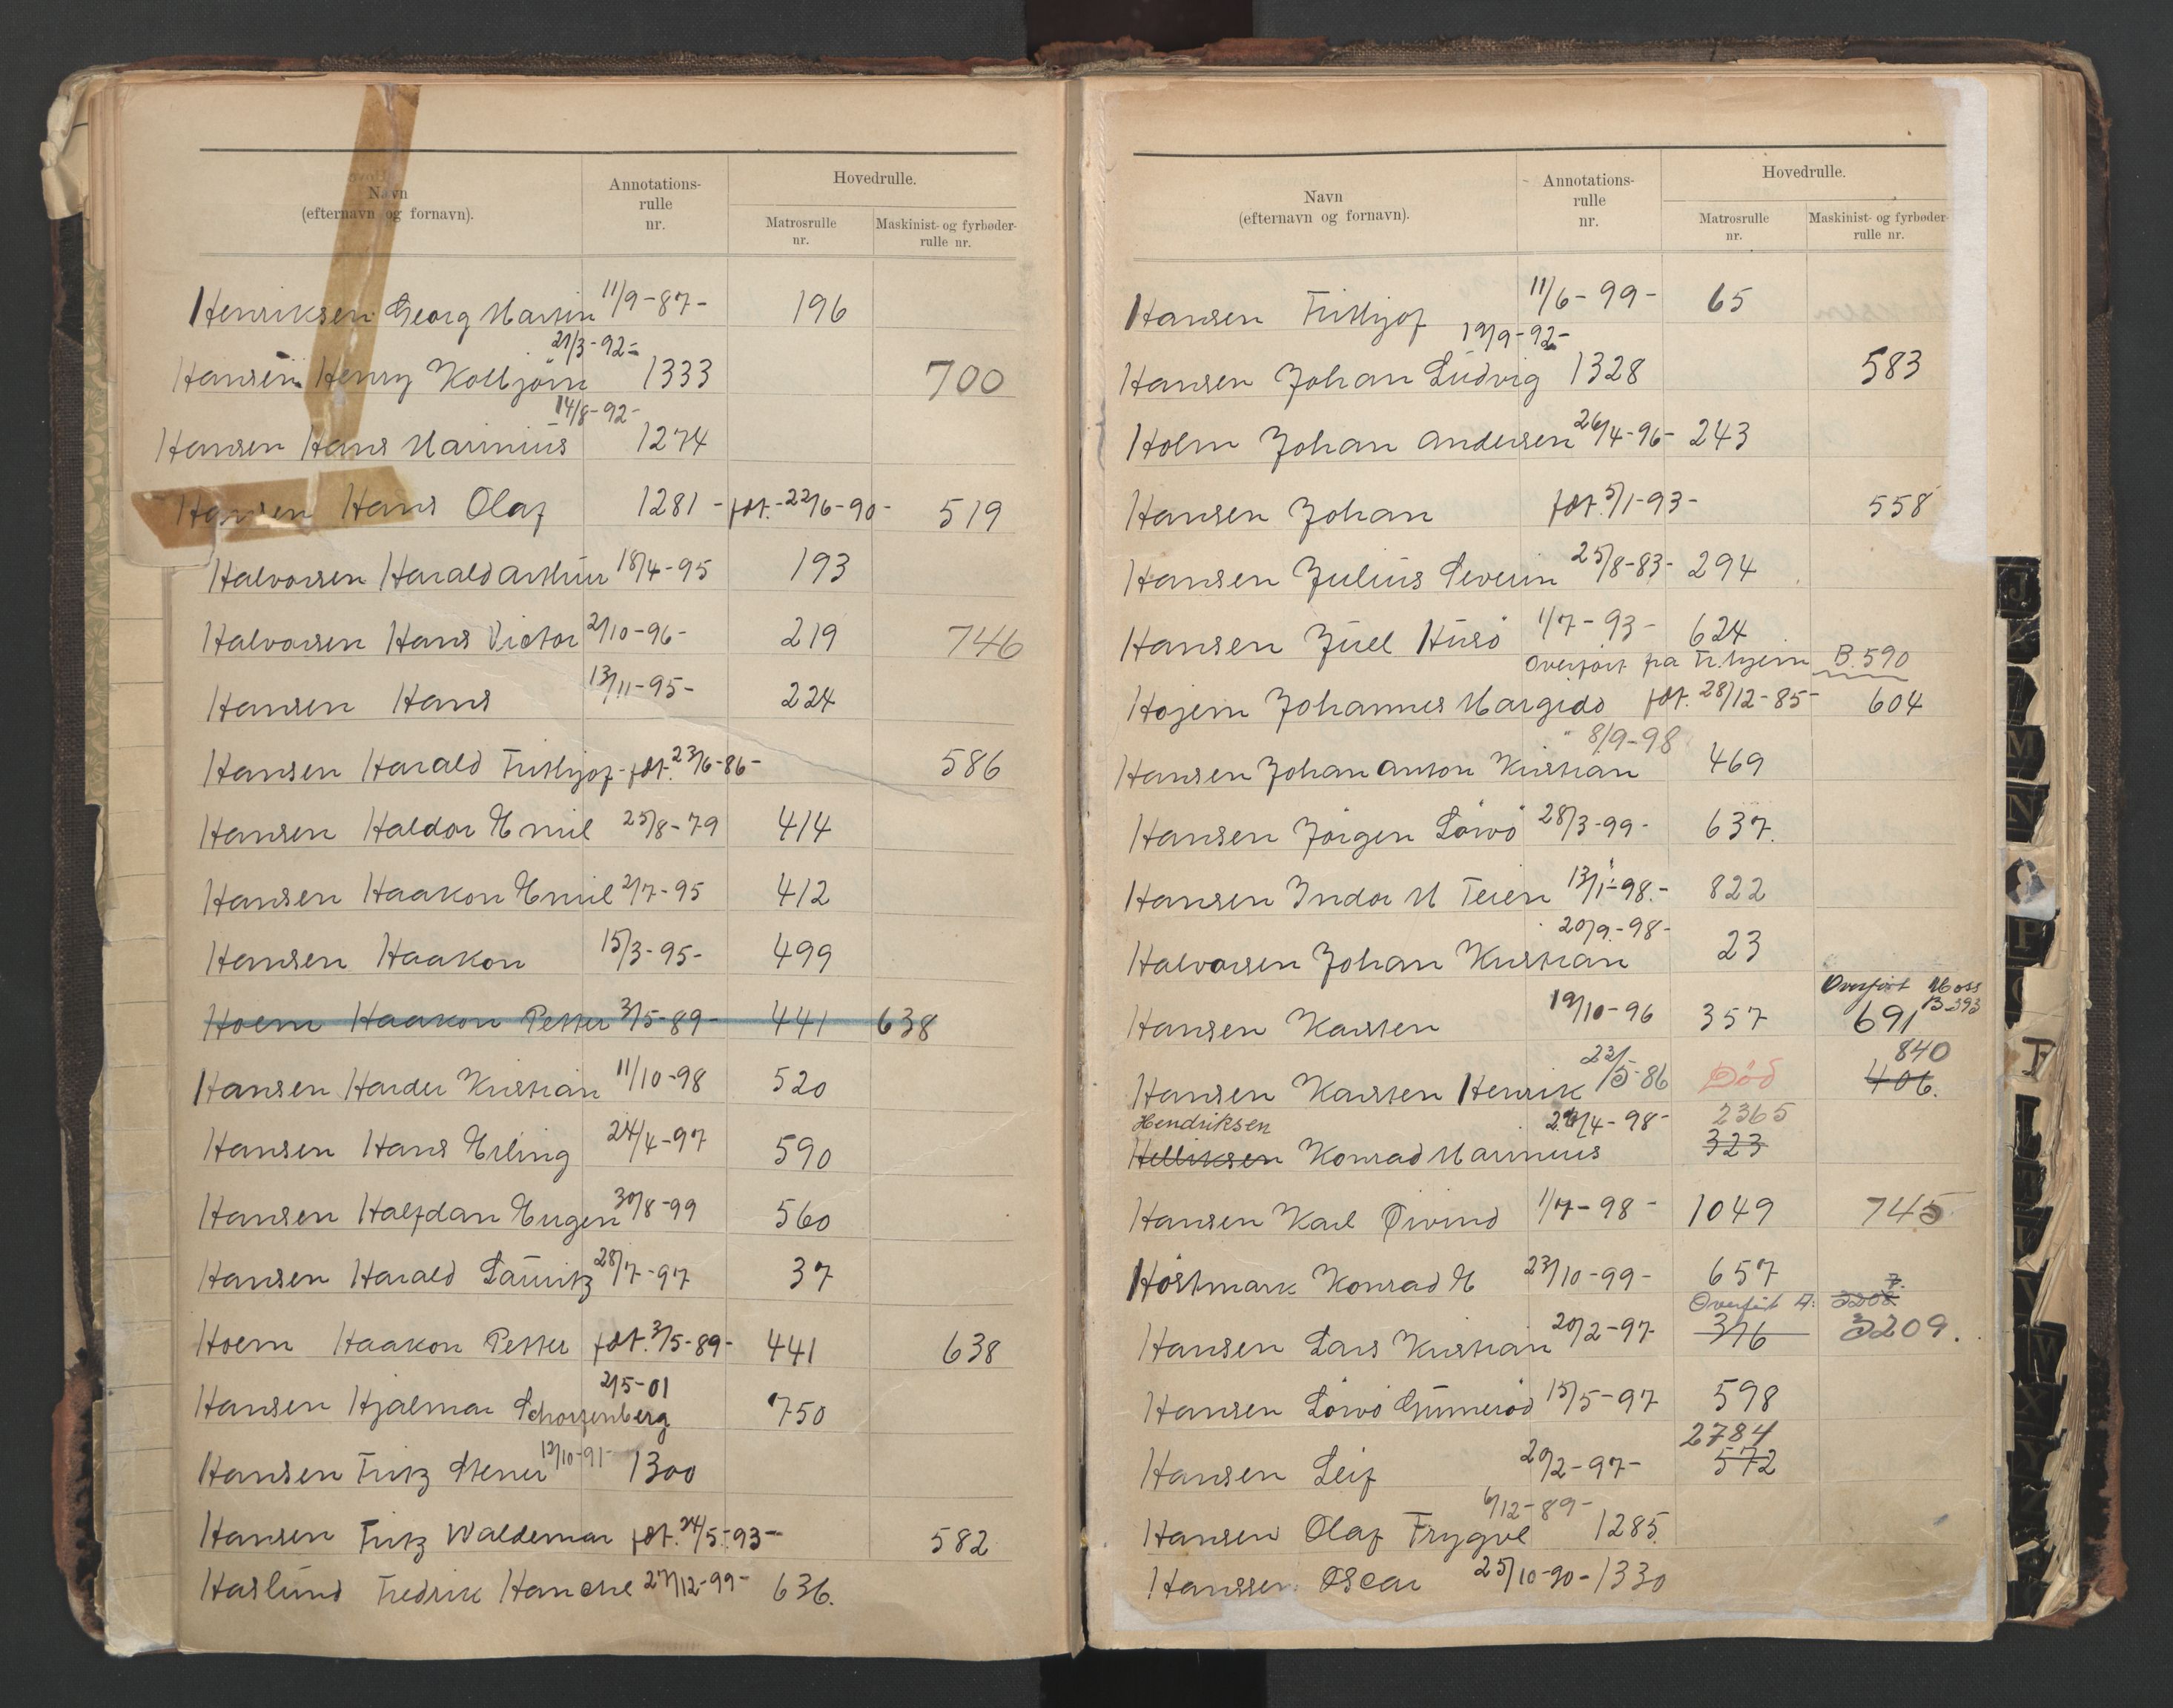 Navn
(efternavn og fornavn).
Annotations-
rulle
nr.
Hovedrulle.
Matrosrulle
nr.
Maskinist- og fyrbøder-
rulle nr.
Henriksen Georg Martin 11/9-87- 196
21/3-92-
Hansen Henry Kolbjörn 1333 700
14/8-92-
Hansen Hans Marinius 1274
Hansen Hans Olaf 1281 - föt.-22/6-90- 519
Halvorsen Harald Arthur 18/4-95 193
Halvorsen Hans Victor 2/10-96- 219 746
Hansen Hans 13/11-95- 224
Hansen Harald Frithjof - föt. 23/6-86- 586
Hansen Haldor Emil 25/8-79 414
Hansen Haakon Emil 2/7-95 412
Hansen Haakon 15/3-95- 499
Hoem Haakon Petter 3/5-89- 441 638
Hansen Harder Kristian 11/10-98 520
Hansen Hans Erling 24/4-97 590
Hansen Halfdan Eugen 30/8-99 560
Hansen Harald Lauritz 28/7-97 37
Hoem Haakon Petter föt. 3/5-89- 441 638
2/5-01
Hansen Hjalmar Schorfenberg 750
Hansen Fritz Stener 12/10-91- 1300
Hansen Fritz Waldemar föt. 24/5-93- 582
Haslund Fredrik Hanche 27/12-99- 636.
Navn
(efternavn og fornavn).
Annotations-
rulle
nr.
Hovedrulle.
Matrosrulle
nr.
Maskinist- og fyrbøder-
rulle nr.
Hansen Frithjof 11/6-99- 65
19/9-92-
Hansen Johan Ludvig 1328 583
Holm Johan Andersen 26/4-96- 243
Hansen Johan föt. 5/1-93- 558
Hansen Julius Severin 25/8-83- 294
Hansen Juel Husö 1/7-93- 624
Overfört fra Tr.hjem B. 590
Hojem Johannes Margido föt. 28/12-85- 604
8/9-98
Hansen Johan Anton Kristian 469
Hansen Jörgen Lövö 28/3-99- 637.
Hansen Indor M Teien 13/1-98.- 822
20/9-98-
Halvorsen Johan Kristian 23
Overfört Moss
Hansen Karsten 19/10-96 357 691 B-393
840
Hansen Karsten Henrik 23/5-86 Död 406.
Hendriksen 24/4-98- 2365
Helliksen Konrad Marinius 323
Hansen Karl Øivind 1/7-98- 1049 745
Höstmark Konrad E 23/10-99- 657
Overfört A: 3208 7.
Hansen Lars Kristian 20/2-97- 316 3209.
Hansen Lövö Gunneröd 15/5-97 598
2784
Hansen Leif 20/2-97- 572
6/12-89-
Hansen Olaf Trygve 1285.
Hanssen Oscar 25/10-90- 1330